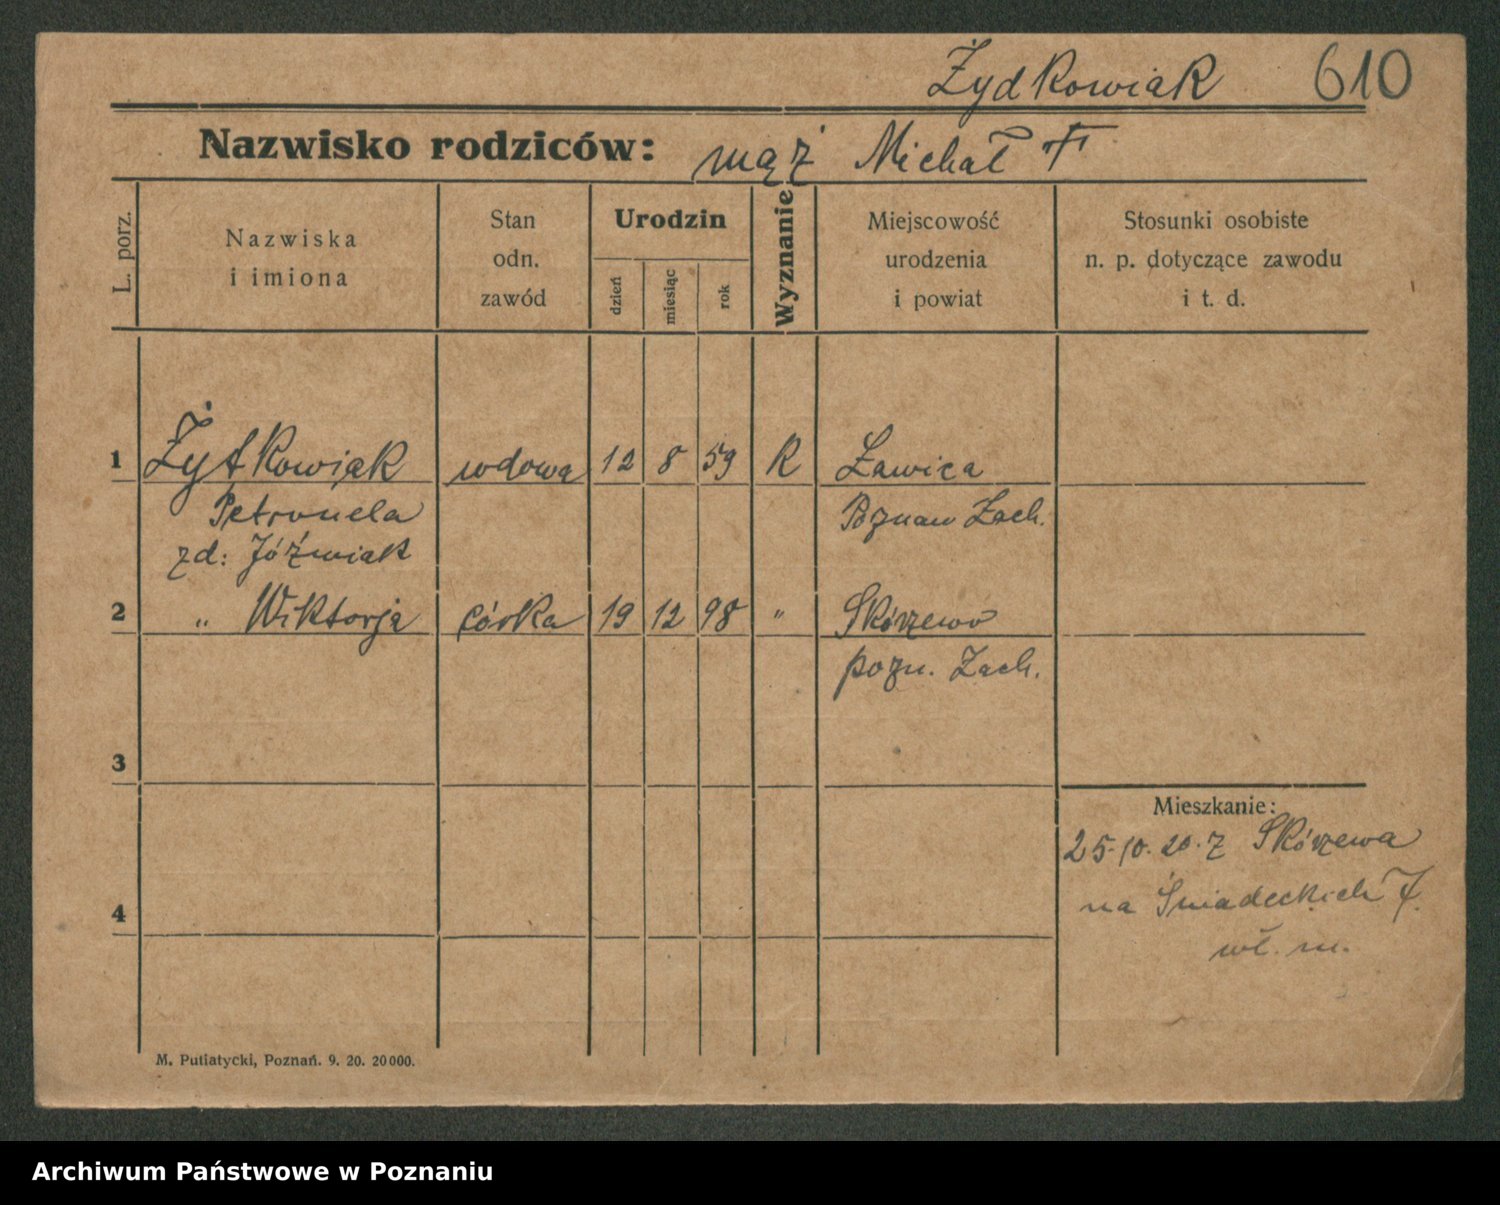 Żydkowiak 610
Nazwisko rodziców: mąż Michał †
L. porz.
Nazwiska
i imiona
Stan
odn.
zawód
Urodzin
dzień
miesiąc
rok
Wyznanie
Miejscowość
urodzenia
i powiat
Stosunki osobiste
n. p. dotyczące zawodu
i t. d.
1 Żytkowiak wdowa 12 8 59 R Ławica
Petronela Poznań Zach.
zd: Jóźwiak
2 " Wiktorja córka 19 12 98 " Skórzewo
pozn. Zach.
3
Mieszkanie:
25.10.20. z Skórzewa
na Śniadeckich 7.
4
wł. m.
M. Putiatycki, Poznań. 9. 20. 20000.
Archiwum Państwowe w Poznaniu